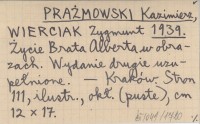 PRAŻMOWSKI Kazimierz,
WIERCIAK Zygmunt 1939.
Życie Brata Alberta w obra-
zach. Wydanie drugie uzu-
pełnione. — Kraków, Stron
111, ilustr., okł. (puste), cm
12 × 17.